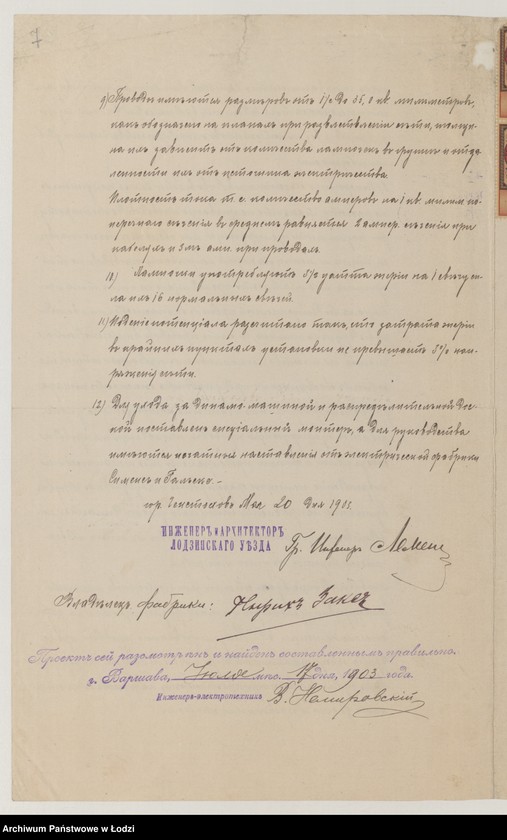 7
9) Провода имѣются размѣровъ отъ 1½ до 35,0 кв. миллиметровъ,
какъ обозначено на планахъ при развѣтвленіи сѣти, толщи-
на ихъ зависитъ отъ количества лампочекъ въ группѣ и отда-
ленности ихъ отъ источника электричества.
Плотность тока т. е. количество амперовъ на 1 кв. милим. по-
перечнаго сѣченія въ среднемъ равняется 2 ампер. сѣченія при
кабеляхъ и 3мъ амп. при проводахъ.
10) Лампочки употребляютъ 3½ уатта энергіи на 1 свѣчу
въ 16 нормальныхъ свѣчей.
11) Паденіе потенціала разсчитано такъ, что затрата энергіи
въ крайнихъ пунктахъ установки не превышаетъ 3% нап-
ряженія сѣти.
12) Для ухода за динамо-машиной и распредѣлительной дос-
кой поставленъ спеціальный монтеръ, а для руководства
имѣются печатныя наставленія отъ электрической фабрики
Сименсъ и Гальске. –
гор. Ченстоховъ Мая 20 дня 1901
ИНЖЕНЕРЪ и АРХИТЕКТОРЪ
ЛОДЗИНСКАГО УѢЗДА
Гр. Инженеръ
Владѣлецъ фабрики:
Проектъ сей разсмотрѣнъ и найденъ составленнымъ правильно.
г. Варшава, Іюля мѣс. 17 дня, 1903 года.
Инженеръ-электротехникъ
Archiwum Państwowe w Łodzi